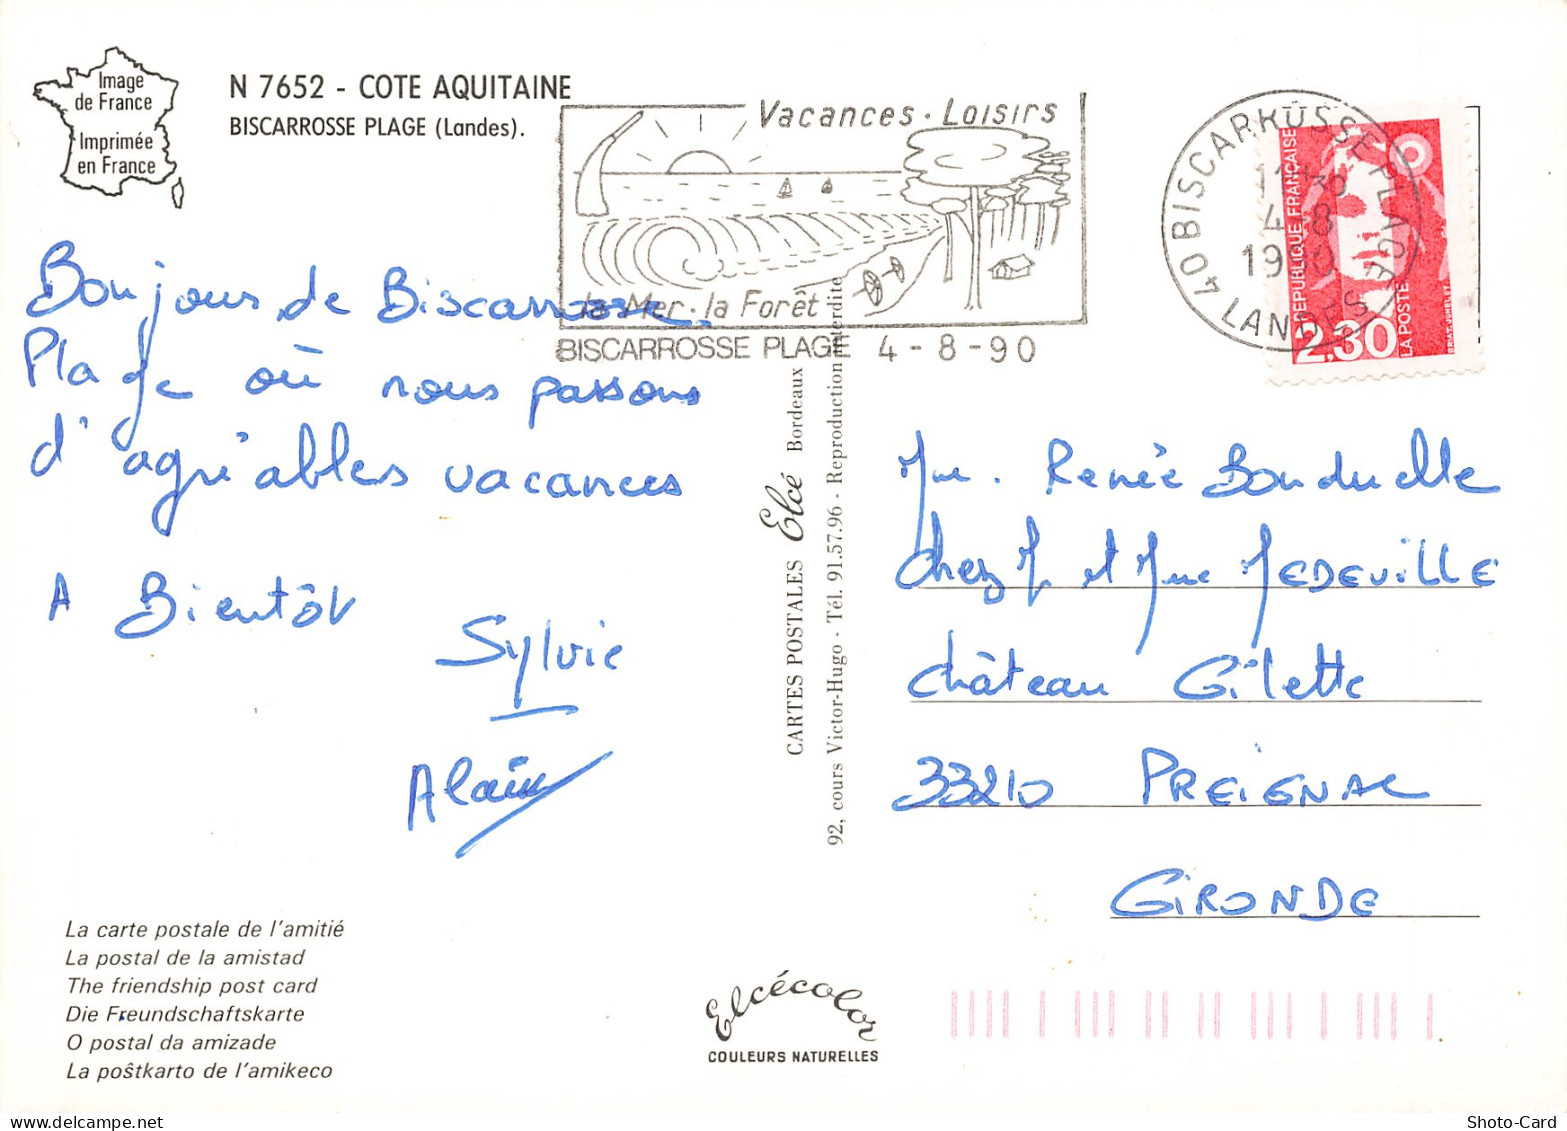 Image
de France
Imprimée
en France
N 7652 - COTE AQUITAINE
BISCARROSSE PLAGE (Landes).
Vacances . Loisirs
la Mer . la Forêt
BISCARROSSE PLAGE 4 - 8 - 90
40 BISCARROSSE PLAGE
4 - 8
1990
LANDES
REPUBLIQUE FRANÇAISE
LA POSTE
2,30
Bonjour de Biscarrosse
Plage où nous passons
d'agréables vacances
A Bientôt
Sylvie
Alain
CARTES POSTALES Elcé Bordeaux
92, cours Victor-Hugo - Tél. 91.57.96 - Reproduction interdite
Mme. Renée Bonduelle
chez M et Mme MEDEVILLE
château Gilette
33210 PREIGNAC
GIRONDE
La carte postale de l'amitié
La postal de la amistad
The friendship post card
Die Freundschaftskarte
O postal da amizade
La poŝtkarto de l'amikeco
Elcécolor
COULEURS NATURELLES
delcampe.net
Shoto-Card